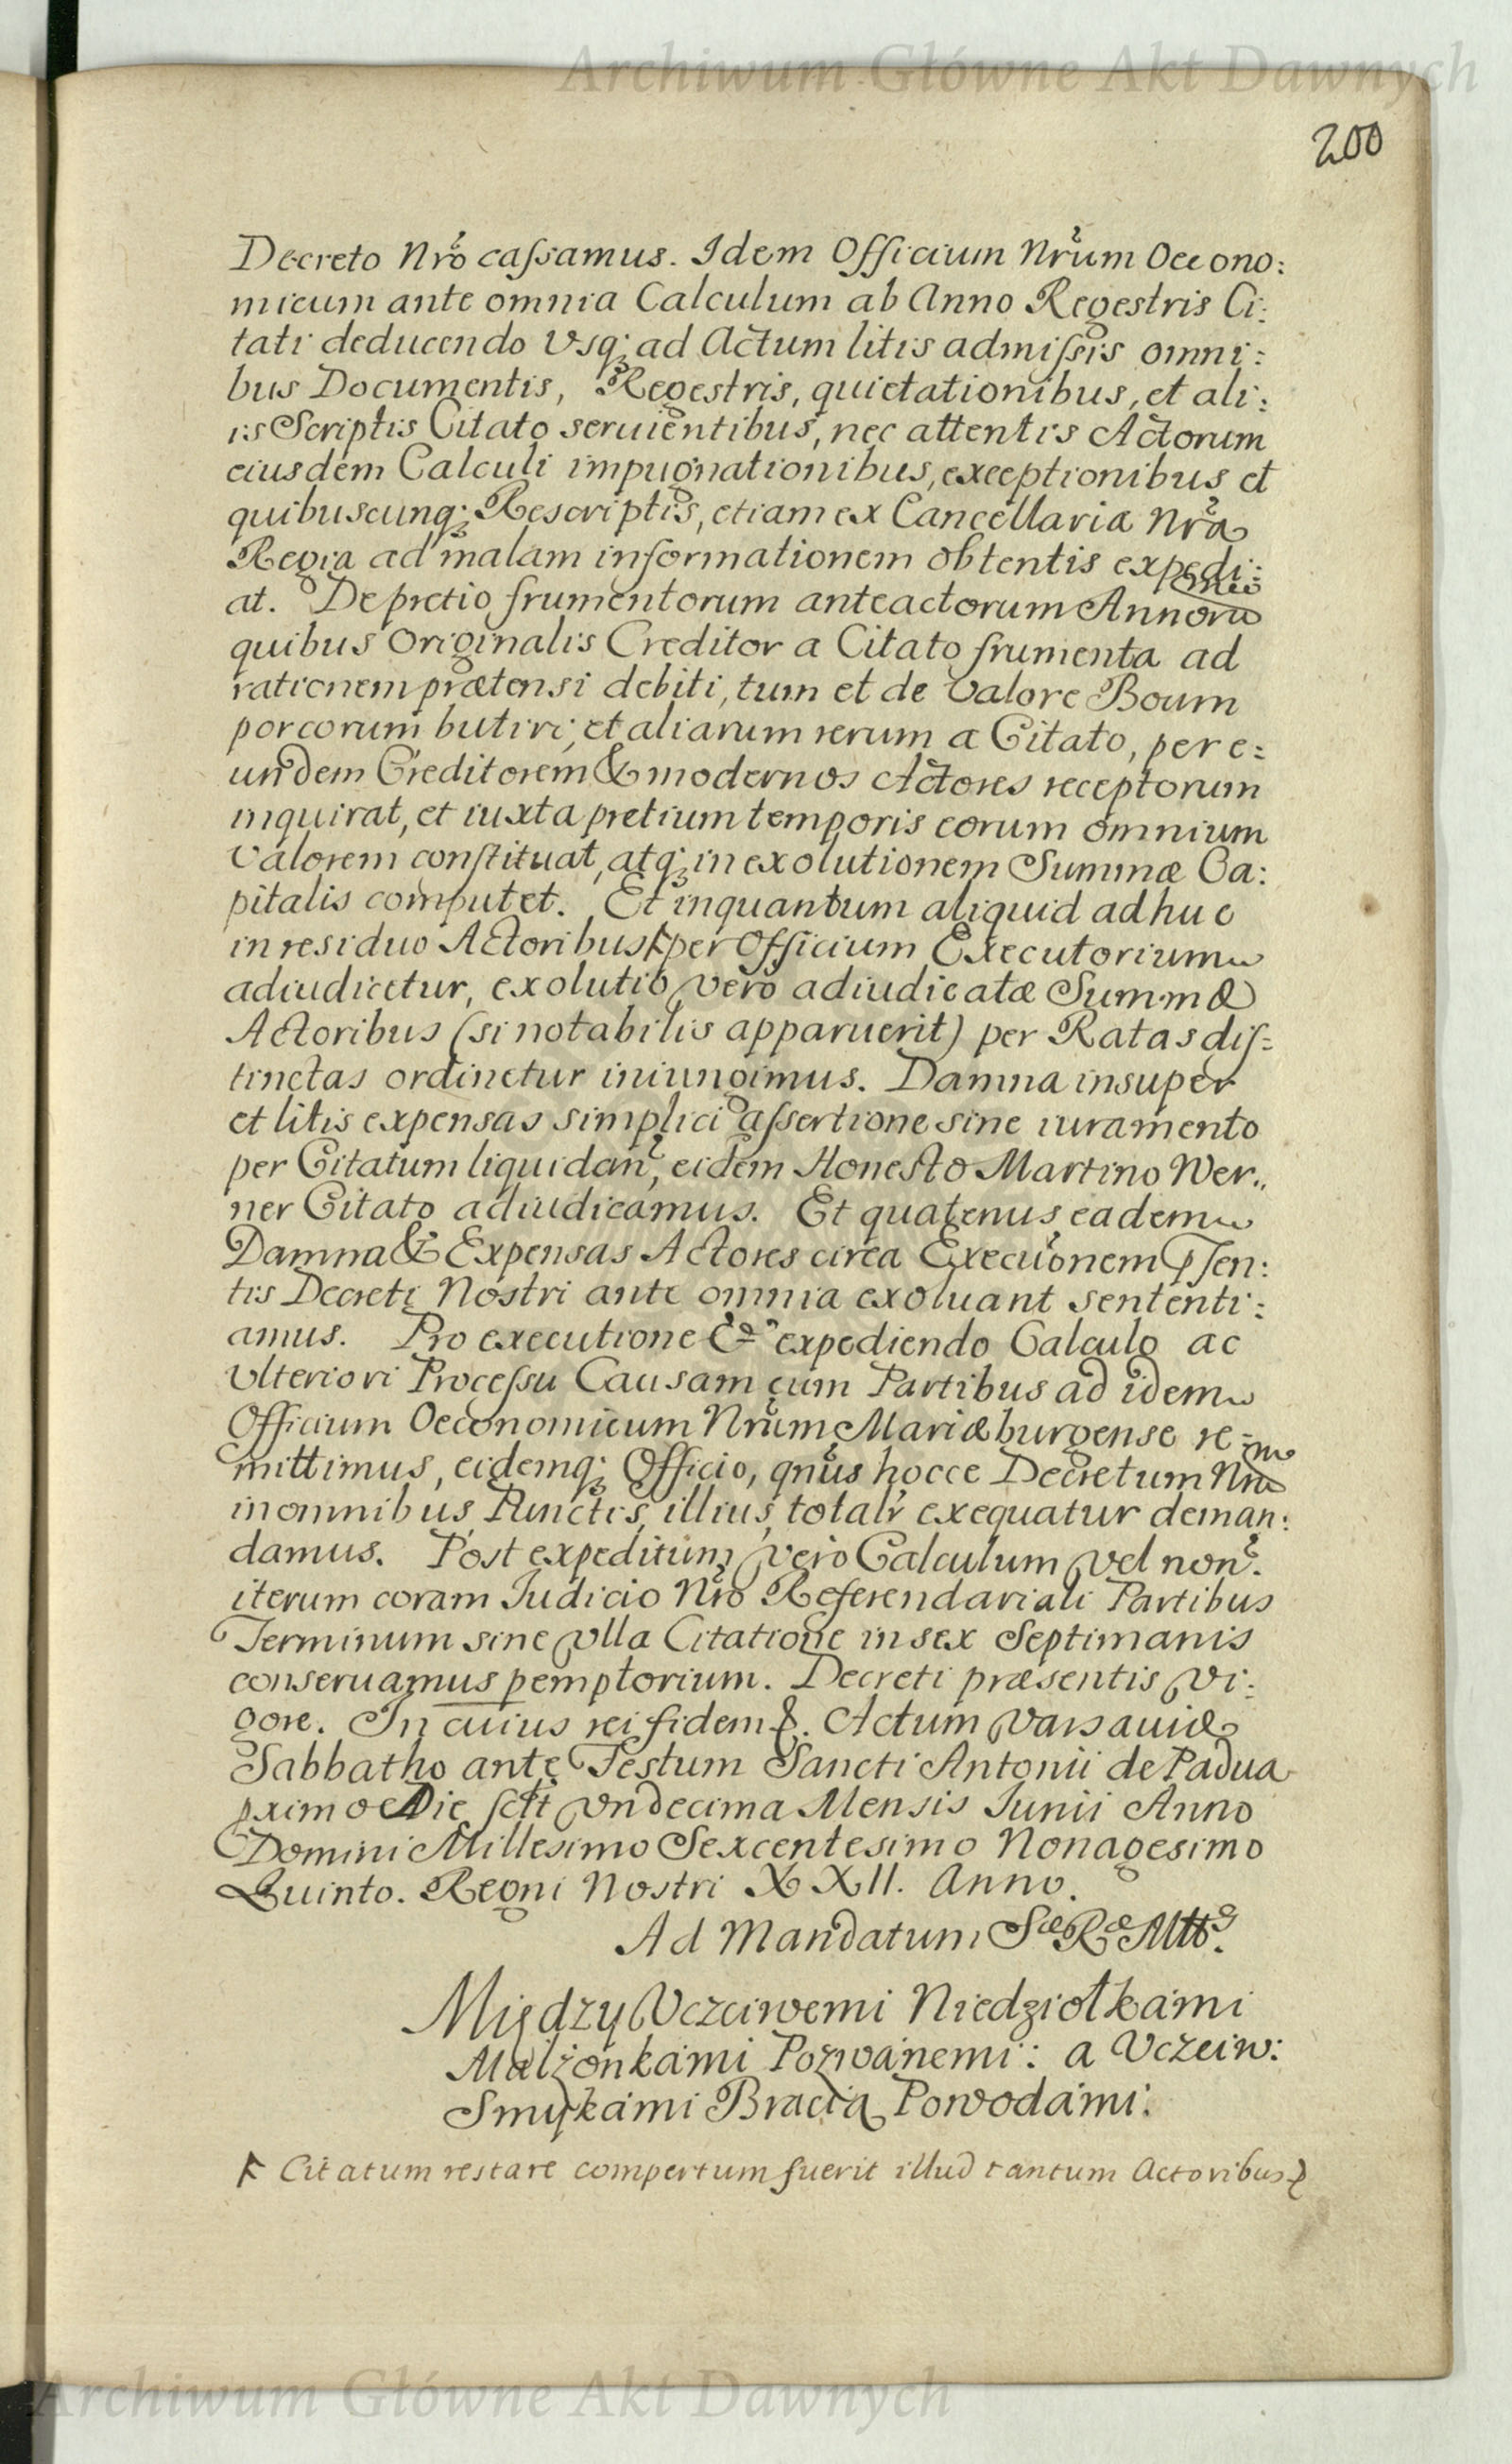 Archiwum Główne Akt Dawnych
200
Decreto Nro cassamus. Idem Officium Nrum Oecono:
micum ante omnia Calculum ab Anno Regestris Ci:
tati deducendo Vsq; ad Actum litis admissis omni:
bus Documentis, Regestris, quietationibus, et ali:
is Scriptis Citato seruientibus, nec attentis Actorum
eiusdem Calculi impugnationibus, exceptionibus et
quibuscunq; Rescriptis, etiam ex Cancellaria Nra
Regia ad malam informationem obtentis expedi:
at. De pretio frumentorum anteactorum Annoru
quibus Originalis Creditor a Citato frumenta ad
rationem prætensi debiti, tum et de Valore Boum
porcorum butiri, et aliarum rerum a Citato, per e:
undem Creditorem & modernos Actores receptorum
inquirat, et iuxta pretium temporis eorum omnium
Valorem constituat, atq; in exolutionem Summæ Ca:
pitalis computet. Et inquantum aliquid adhuc
in residuo Actoribus per Officium Executorium
adiudicetur, exolutio vero adiudicatæ Summæ
Actoribus (si notabilis apparuerit) per Ratas dis:
tinctas ordinetur iniungimus. Damna insuper
et litis expensas simplici assertione sine iuramento
per Citatum liquidan, eidem Honesto Martino Wer:
ner Citato adiudicamus. Et quatenus eadem
Damna & Expensas Actores circa Execuonem pſen:
tis Decreti Nostri ante omnia exoluant sententi:
amus. Pro executione & expediendo Calculo ac
Vlteriori Processu Causam cum Partibus ad idem
Officium Oeconomicum Nrum Mariæburgense re:
mittimus, eidemq; Officio, qnus hocce Decretum Nrm
in omnibus Punctis, illius, totalr exequatur deman:
damus. Post expeditum vero Calculum vel non.
iterum coram Iudicio Nro Referendariali Partibus
Terminum sine vlla Citatione in sex Septimanis
conseruamus pemptorium. Decreti præsentis vi:
gore. In cuius rei fidem &. Actum Varsauiæ
Sabbatho ante Festum Sancti Antonii de Padua
pximo Die sctt vndecima Mensis Iunii Anno
Domini Millesimo Sexcentesimo Nonagesimo
Quinto. Regni Nostri XXII. Anno.
Ad Mandatum Sæ Ræ Mttis.
Między Vczciwemi Niedziołkámi
Małżonkámi Pozwánemi: a Vczciw:
Smykámi Bracią Powodámi.
Citatum restare compertum fuerit illud tantum Actoribus
Archiwum Główne Akt Dawnych